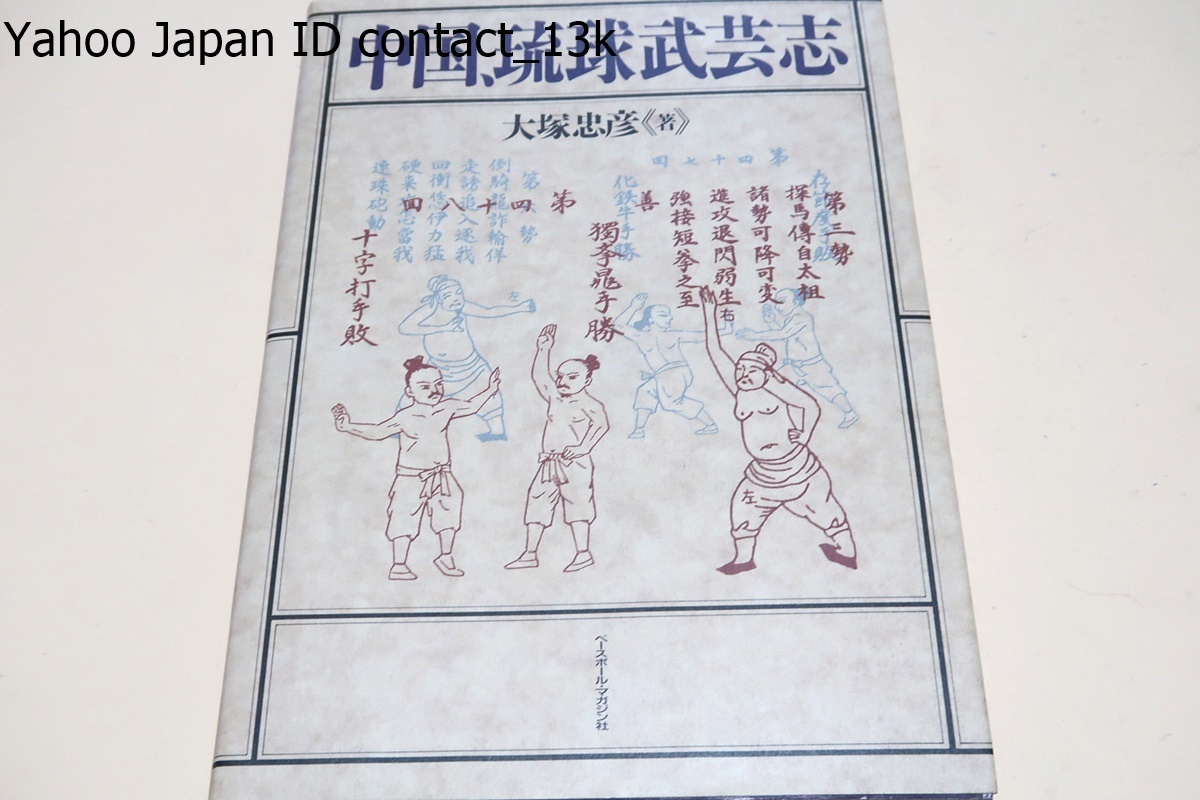 Yahoo Japan ID contact_13k
中国、琉球武芸志
大塚忠彦《著》
第三勢
探馬傳自太祖
諸勢可降可変
進攻退閃弱生
強接短拳之至
善
第四十七
化鉄牛手勝
第四十八
手勝
十字打手敗
倒騎龍詐輸佯
走誘追入遂我
力猛
硬来
當我
連珠砲動
左
右
左
ベースボール・マガジン社